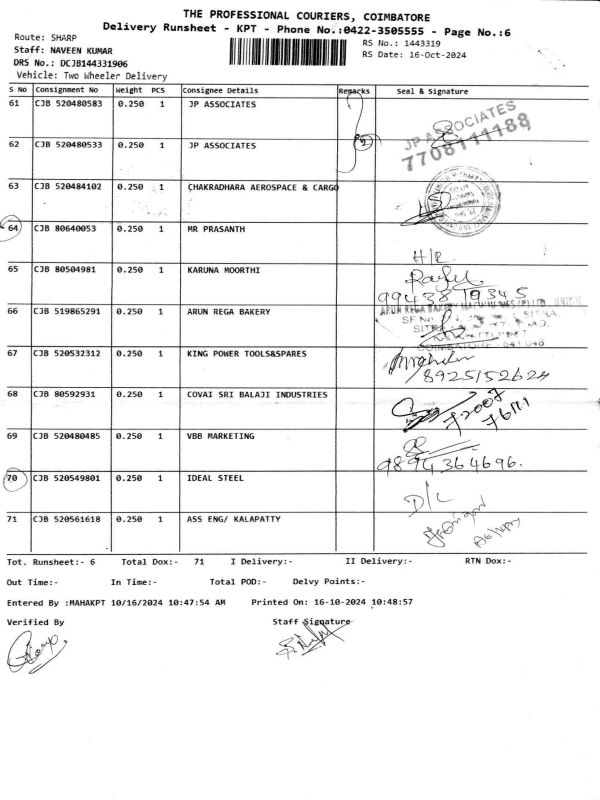 THE PROFESSIONAL COURIERS, COIMBATORE
Delivery Runsheet - KPT - Phone No.:0422-3505555 - Page No.:6
Route: SHARP
RS No.: 1443319
Staff: NAVEEN KUMAR
RS Date: 16-Oct-2024
DRS No.: DCJB144331906
Vehicle: Two Wheeler Delivery
S No Consignment No Weight PCS Consignee Details Remarks Seal & Signature
61 CJB 520480583 0.250 1 JP ASSOCIATES
JP ASSOCIATES
7708111188
62 CJB 520480533 0.250 1 JP ASSOCIATES
63 CJB 520484102 0.250 1 CHAKRADHARA AEROSPACE & CARGO
64 CJB 80640053 0.250 1 MR PRASANTH
65 CJB 80504981 0.250 1 KARUNA MOORTHI
9943819345
66 CJB 519865291 0.250 1 ARUN REGA BAKERY
67 CJB 520532312 0.250 1 KING POWER TOOLS&SPARES
8925152624
68 CJB 80592931 0.250 1 COVAI SRI BALAJI INDUSTRIES
69 CJB 520480485 0.250 1 VBB MARKETING
9894364696.
70 CJB 520549801 0.250 1 IDEAL STEEL
D/L
71 CJB 520561618 0.250 1 ASS ENG/ KALAPATTY
Tot. Runsheet:- 6 Total Dox:- 71 I Delivery:- II Delivery:- RTN Dox:-
Out Time:- In Time:- Total POD:- Delvy Points:-
Entered By :MAHAKPT 10/16/2024 10:47:54 AM Printed On: 16-10-2024 10:48:57
Verified By Staff Signature